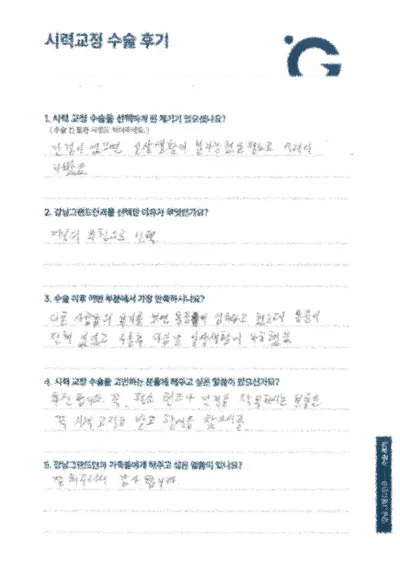 시력교정 수술 후기
1. 시력 교정 수술을 선택하게 된 계기가 있으셨나요?
(수술 전 불편 사항도 적어주세요.)
안경이 없으면 일상생활이 불가능했을 정도로 시력이
나빴음
2. 강남그랜드안과를 선택한 이유가 무엇인가요?
추천으로 선택
3. 수술 이후 어떤 부분에서 가장 만족하시나요?
다른 사람들의 후기를 보면 통증이 심하다고 했는데 통증이
전혀 없었고 수술후 다음날 일상생활이 가능했음
4. 시력 교정 수술을 고민하는 분들에게 해주고 싶은 말씀이 있으신가요?
추천합니다. 꼭, 평소 렌즈나 안경을 착용하시는 분들은
꼭 시력교정을 받고
5. 강남그랜드안과 가족들에게 해주고 싶은 말씀이 있나요?
잘 해주셔서 감사합니다.